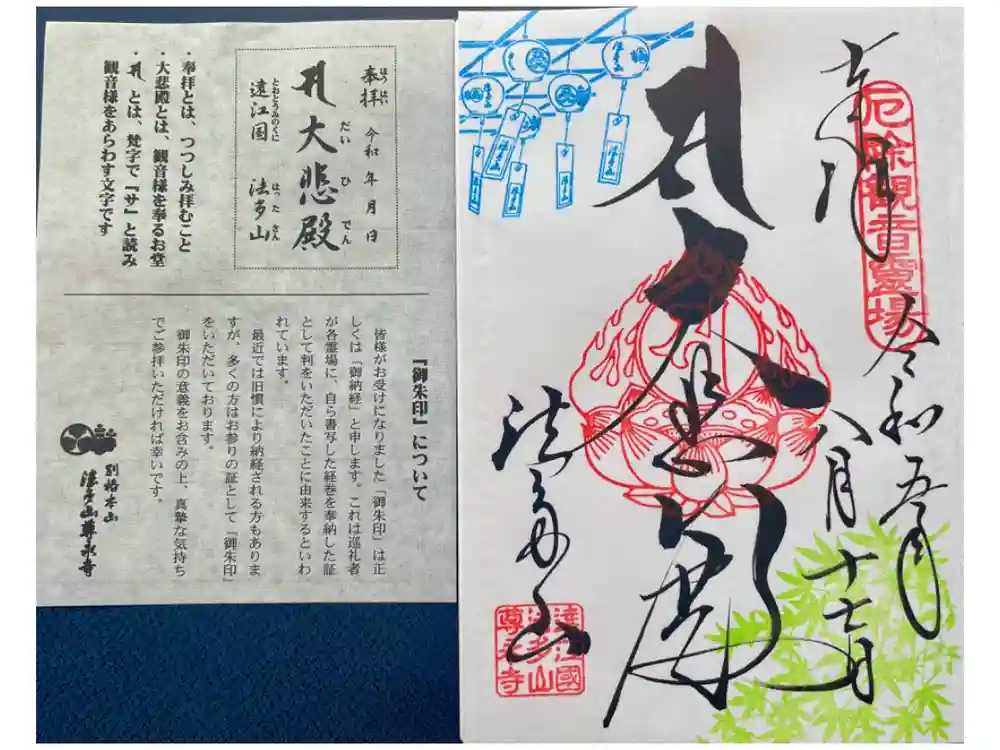 ・奉拝とは、つつしみ拝むこと
・大悲殿とは、観音様を奉るお堂
・サとは、梵字で『サ』と読み
観音様をあらわす文字です
奉拝 令和 年 月 日
ほうはい
大悲殿
だいひでん
遠江国 法多山
とおとうみのくに はったさん
『御朱印』について
皆様がお受けになりました「御朱印」は正
しくは「御納経」と申します。これは巡礼者
が各霊場に、自ら書写した経巻を奉納した証
として判をいただいたことに由来するといわ
れています。
最近では旧慣により納経される方もありま
すが、多くの方はお参りの証として「御朱印」
をいただいております。
御朱印の意義をお含みの上、真摯な気持ち
でご参拝いただければ幸いです。
別格本山
法多山尊永寺
奉拝
厄除観音霊場
令和五年
八月十七日
大悲殿
法多山
遠江國
法多山
尊永寺